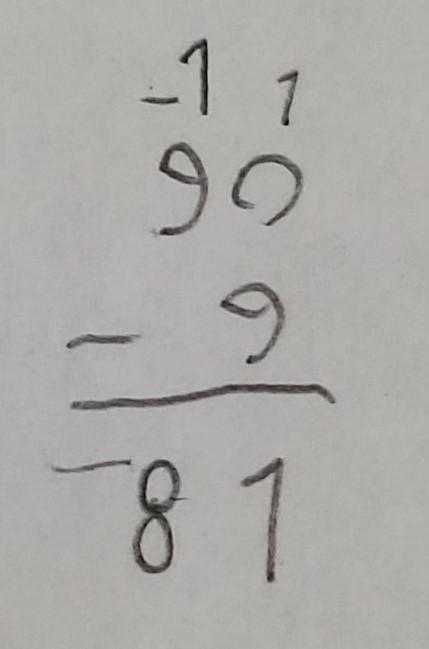 -1 1
90
- 9
-81